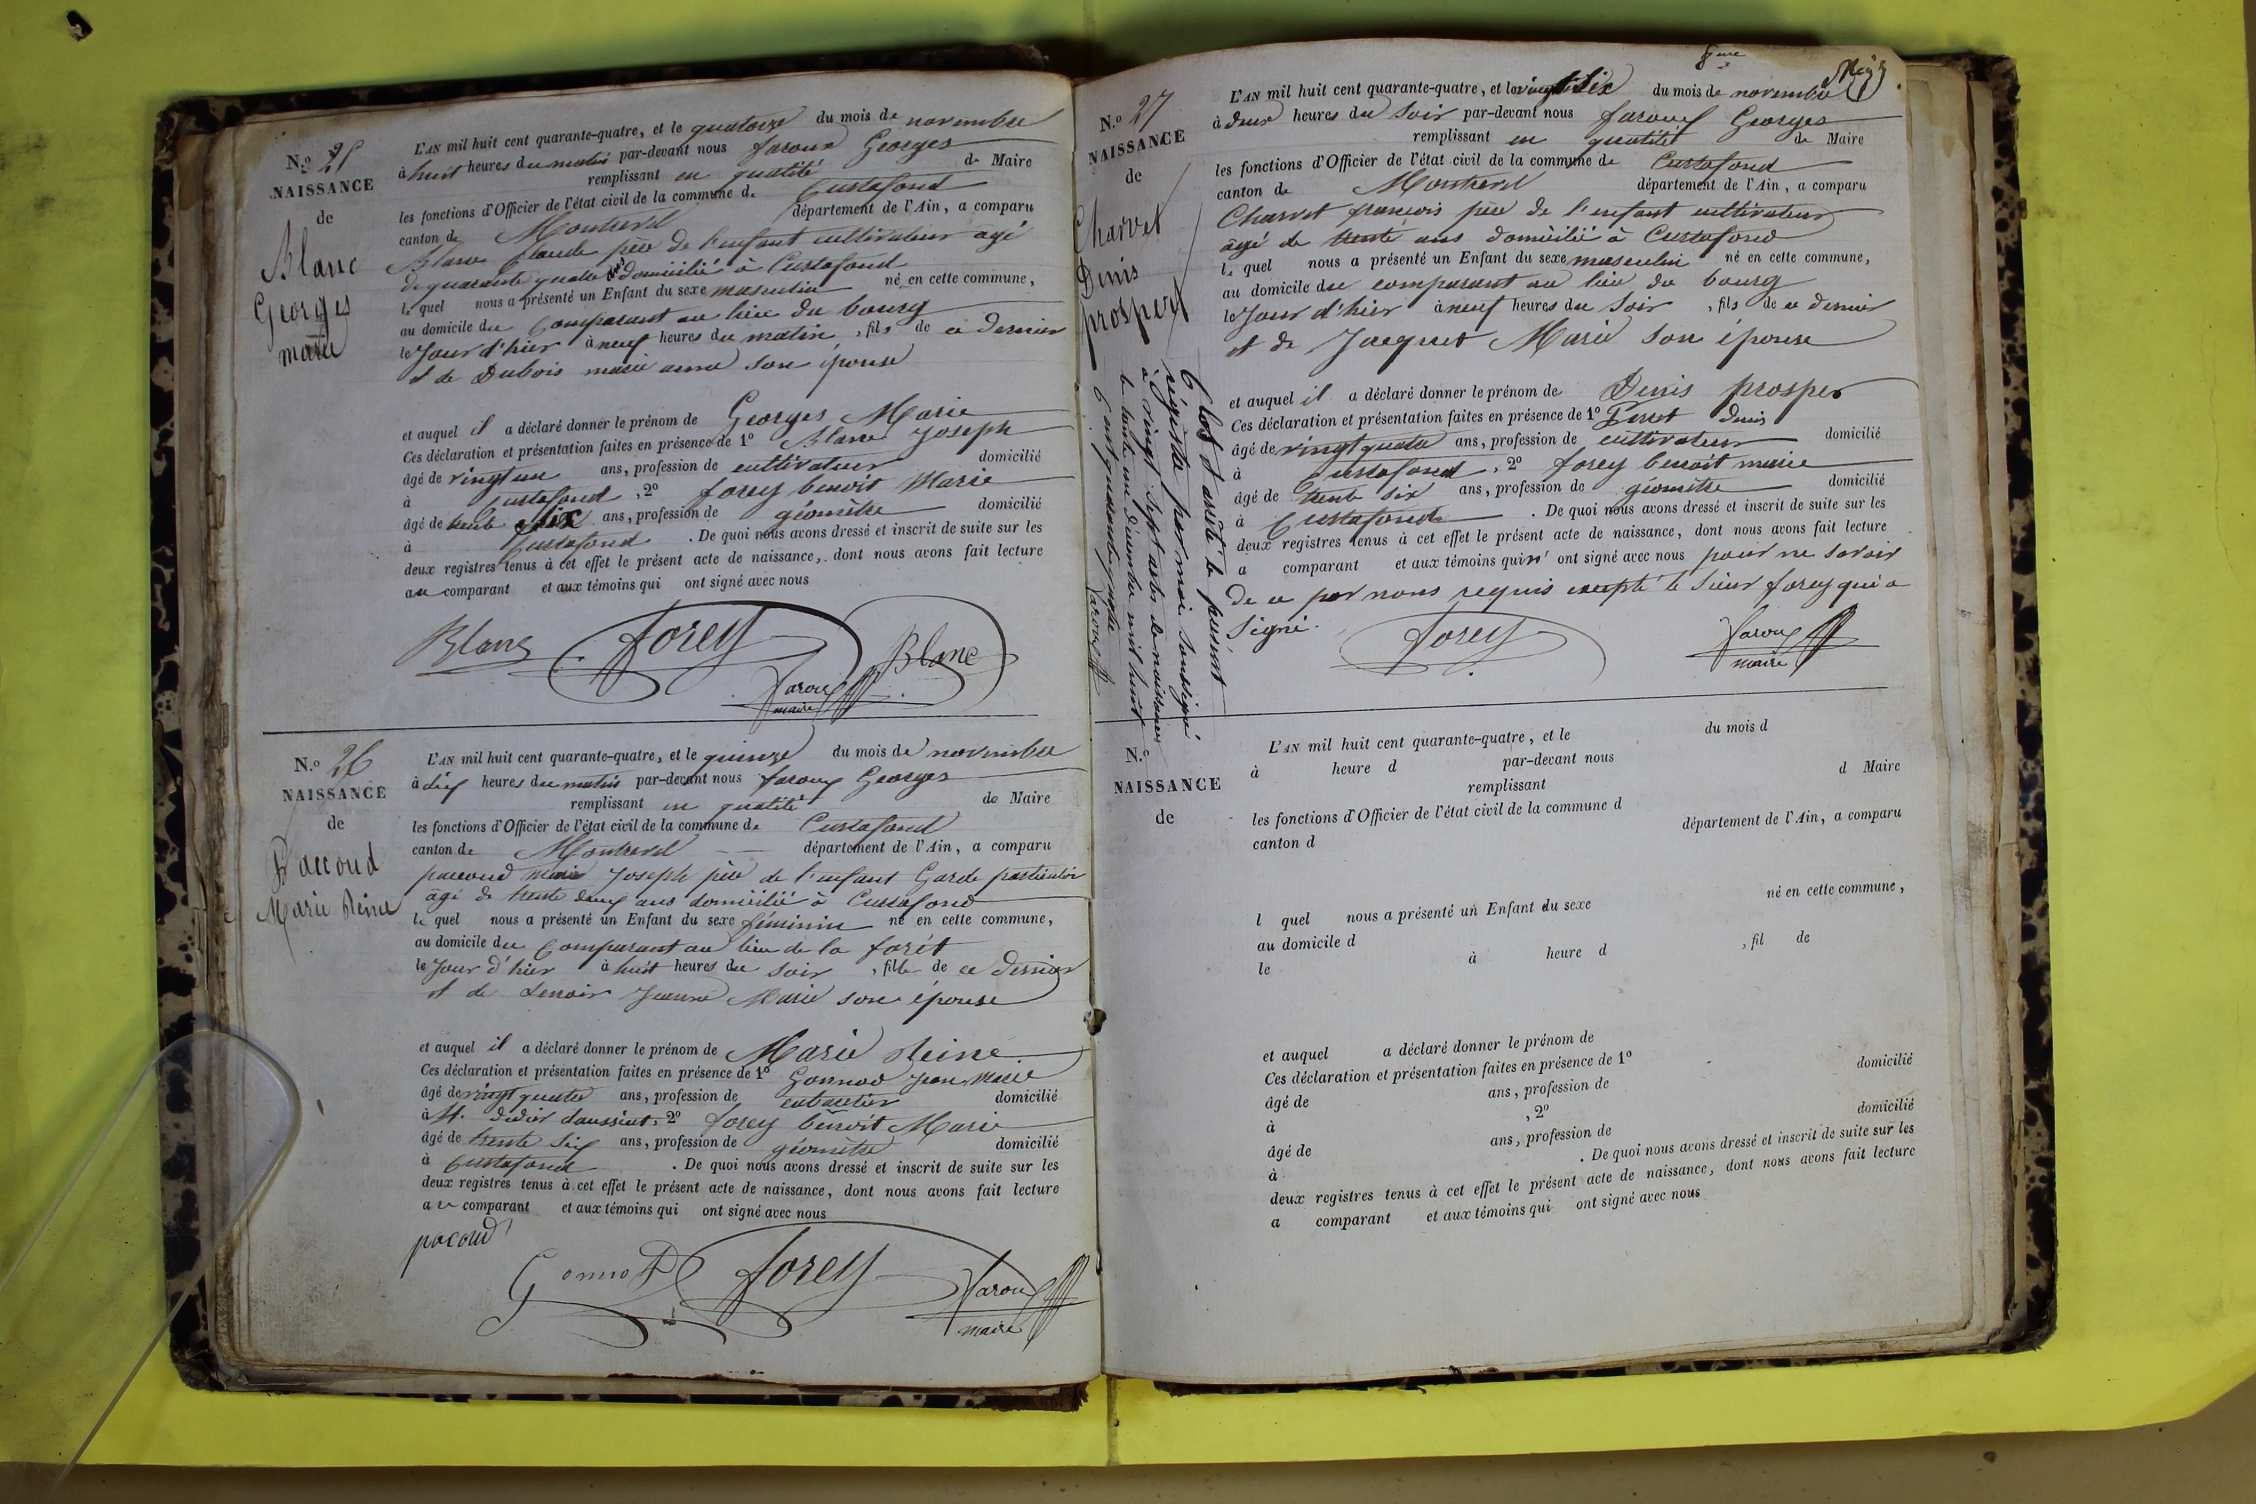 N.o 25
NAISSANCE
de
Blanc
Georges
marie
L'AN mil huit cent quarante-quatre, et le quatorze du mois de novembre
à huit heures du matin par-devant nous faroux Georges
remplissant en qualité de Maire
les fonctions d'Officier de l'état civil de la commune de Curtafond
canton de Montrevel département de l'Ain, a comparu
Blanc Claude père de l'enfant cultivateur agé
de quarante quatre ans domicilié à Curtafond
le quel nous a présenté un Enfant du sexe masculin né en cette commune,
au domicile du Comparant au lieu du bourg
le Jour d'hier à neuf heures du matin, fils de ce dernier
et de Dubois marie anne son épouse
et auquel il a déclaré donner le prénom de Georges Marie
Ces déclaration et présentation faites en présence de 1o Blanc Joseph
âgé de vingt un ans, profession de cultivateur domicilié
à Curtafond, 2o forey benoit Marie
âgé de trente six ans, profession de géomètre domicilié
à Curtafond. De quoi nous avons dressé et inscrit de suite sur les
deux registres tenus à cet effet le présent acte de naissance, dont nous avons fait lecture
au comparant et aux témoins qui ont signé avec nous
Blanc forey Blanc
faroux
maire
N.o 26
NAISSANCE
de
Paccoud
Marie Reine
L'AN mil huit cent quarante-quatre, et le quinze du mois de novembre
à dix heures du matin par-devant nous faroux Georges
remplissant en qualité de Maire
les fonctions d'Officier de l'état civil de la commune de Curtafond
canton de Montrevel département de l'Ain, a comparu
paccoud Joseph père de l'enfant Garde particulier
âgé de trente deux ans domicilié à Curtafond
le quel nous a présenté un Enfant du sexe féminin né en cette commune,
au domicile du Comparant au lieu de la forêt
le Jour d'hier à huit heures du soir, fille de ce dernier
et de Lenoir Jeanne Marie son épouse
et auquel il a déclaré donner le prénom de Marie Reine
Ces déclaration et présentation faites en présence de 1o Gonnod Jean Marie
âgé de vingt quatre ans, profession de cabaretier domicilié
à St. Didier daussiat, 2o forey benoit Marie
âgé de trente six ans, profession de géomètre domicilié
à Curtafond. De quoi nous avons dressé et inscrit de suite sur les
deux registres tenus à cet effet le présent acte de naissance, dont nous avons fait lecture
au comparant et aux témoins qui ont signé avec nous
pacoud
forey
faroux
maire
N.o 27
NAISSANCE
de
Charvet
Denis
prosper
L'AN mil huit cent quarante-quatre, et le vingt Six du mois de novembre
à deux heures du Soir par-devant nous faroux Georges
remplissant en qualité de Maire
les fonctions d'Officier de l'état civil de la commune de Curtafond
canton de Montrevel département de l'Ain, a comparu
Charvet françois père de l'enfant cultivateur
âgé de trente ans domicilié à Curtafond
le quel nous a présenté un Enfant du sexe masculin né en cette commune,
au domicile du comparant au lieu du bourg
le Jour d'hier à neuf heures du Soir, fils de ce dernier
et de Jacquet Marie son épouse
et auquel il a déclaré donner le prénom de Denis prosper
Ces déclaration et présentation faites en présence de 1o denis
âgé de vingt quatre ans, profession de cultivateur domicilié
à Curtafond, 2o forey benoit marie
âgé de trente six ans, profession de géomètre domicilié
à Curtafond. De quoi nous avons dressé et inscrit de suite sur les
deux registres tenus à cet effet le présent acte de naissance, dont nous avons fait lecture
a comparant et aux témoins qui n' ont signé avec nous pour ne savoir
de ce par nous requis excepté le Sieur forey qui a
Signé.
forey
faroux
maire
Clos et arrêté le présent
régistre par moi soussigné
à vingt sept actes de naissances
le trente un décembre mil huit
cent quarante quatre faroux
N.o
NAISSANCE
de
L'AN mil huit cent quarante-quatre, et le du mois d
à heure d par-devant nous
remplissant d Maire
les fonctions d'Officier de l'état civil de la commune d
canton d département de l'Ain, a comparu
l quel nous a présenté un Enfant du sexe né en cette commune,
au domicile d
le à heure d , fil de
et auquel a déclaré donner le prénom de
Ces déclaration et présentation faites en présence de 1o
âgé de ans, profession de domicilié
à , 2o
âgé de ans, profession de domicilié
à . De quoi nous avons dressé et inscrit de suite sur les
deux registres tenus à cet effet le présent acte de naissance, dont nous avons fait lecture
a comparant et aux témoins qui ont signé avec nous